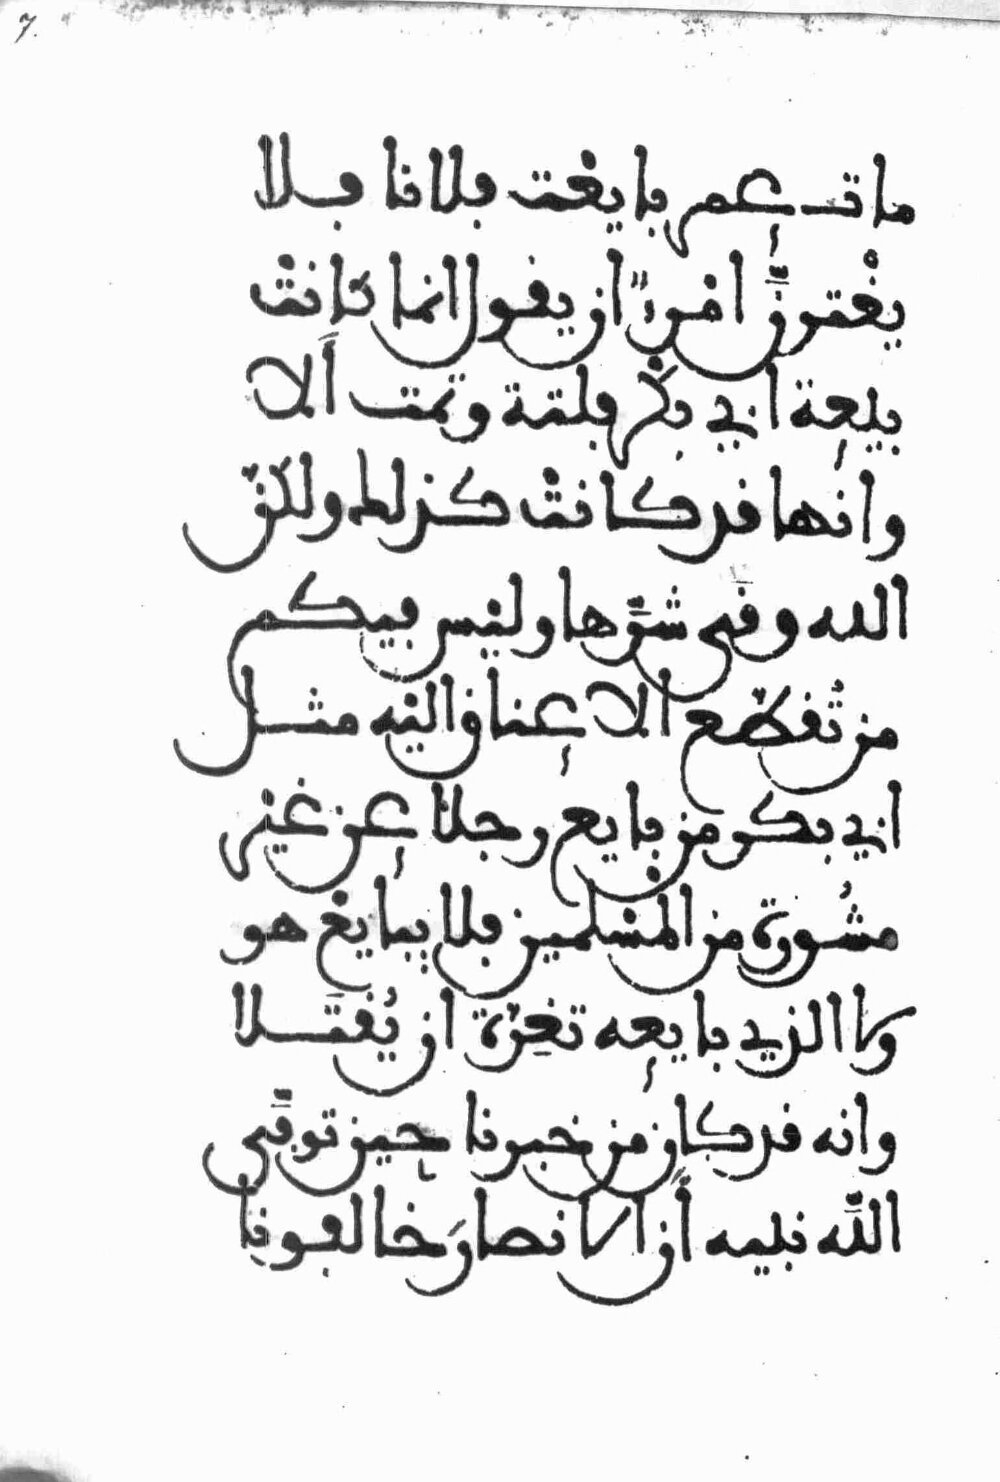 7.
مات عمر بايعت فلانا فلا
يغترنّ امرؤ ان يقول انما كانت
بيعة ابي بكر فلتة وتمت ألا
وانها قد كانت كذلك ولكنّ
الله وقى شرّها وليس فيكم
من تُقطع الاعناق اليه مثل
ابي بكر من بايع رجلا عن غير
مشُورة من المسلمين فلا يبايع هو
ولا الذي بايعه تغرّة ان يُقتلا
وانه قد كان من خبرنا حين توفّى
اللّه نبيه أن الانصار خالفونا